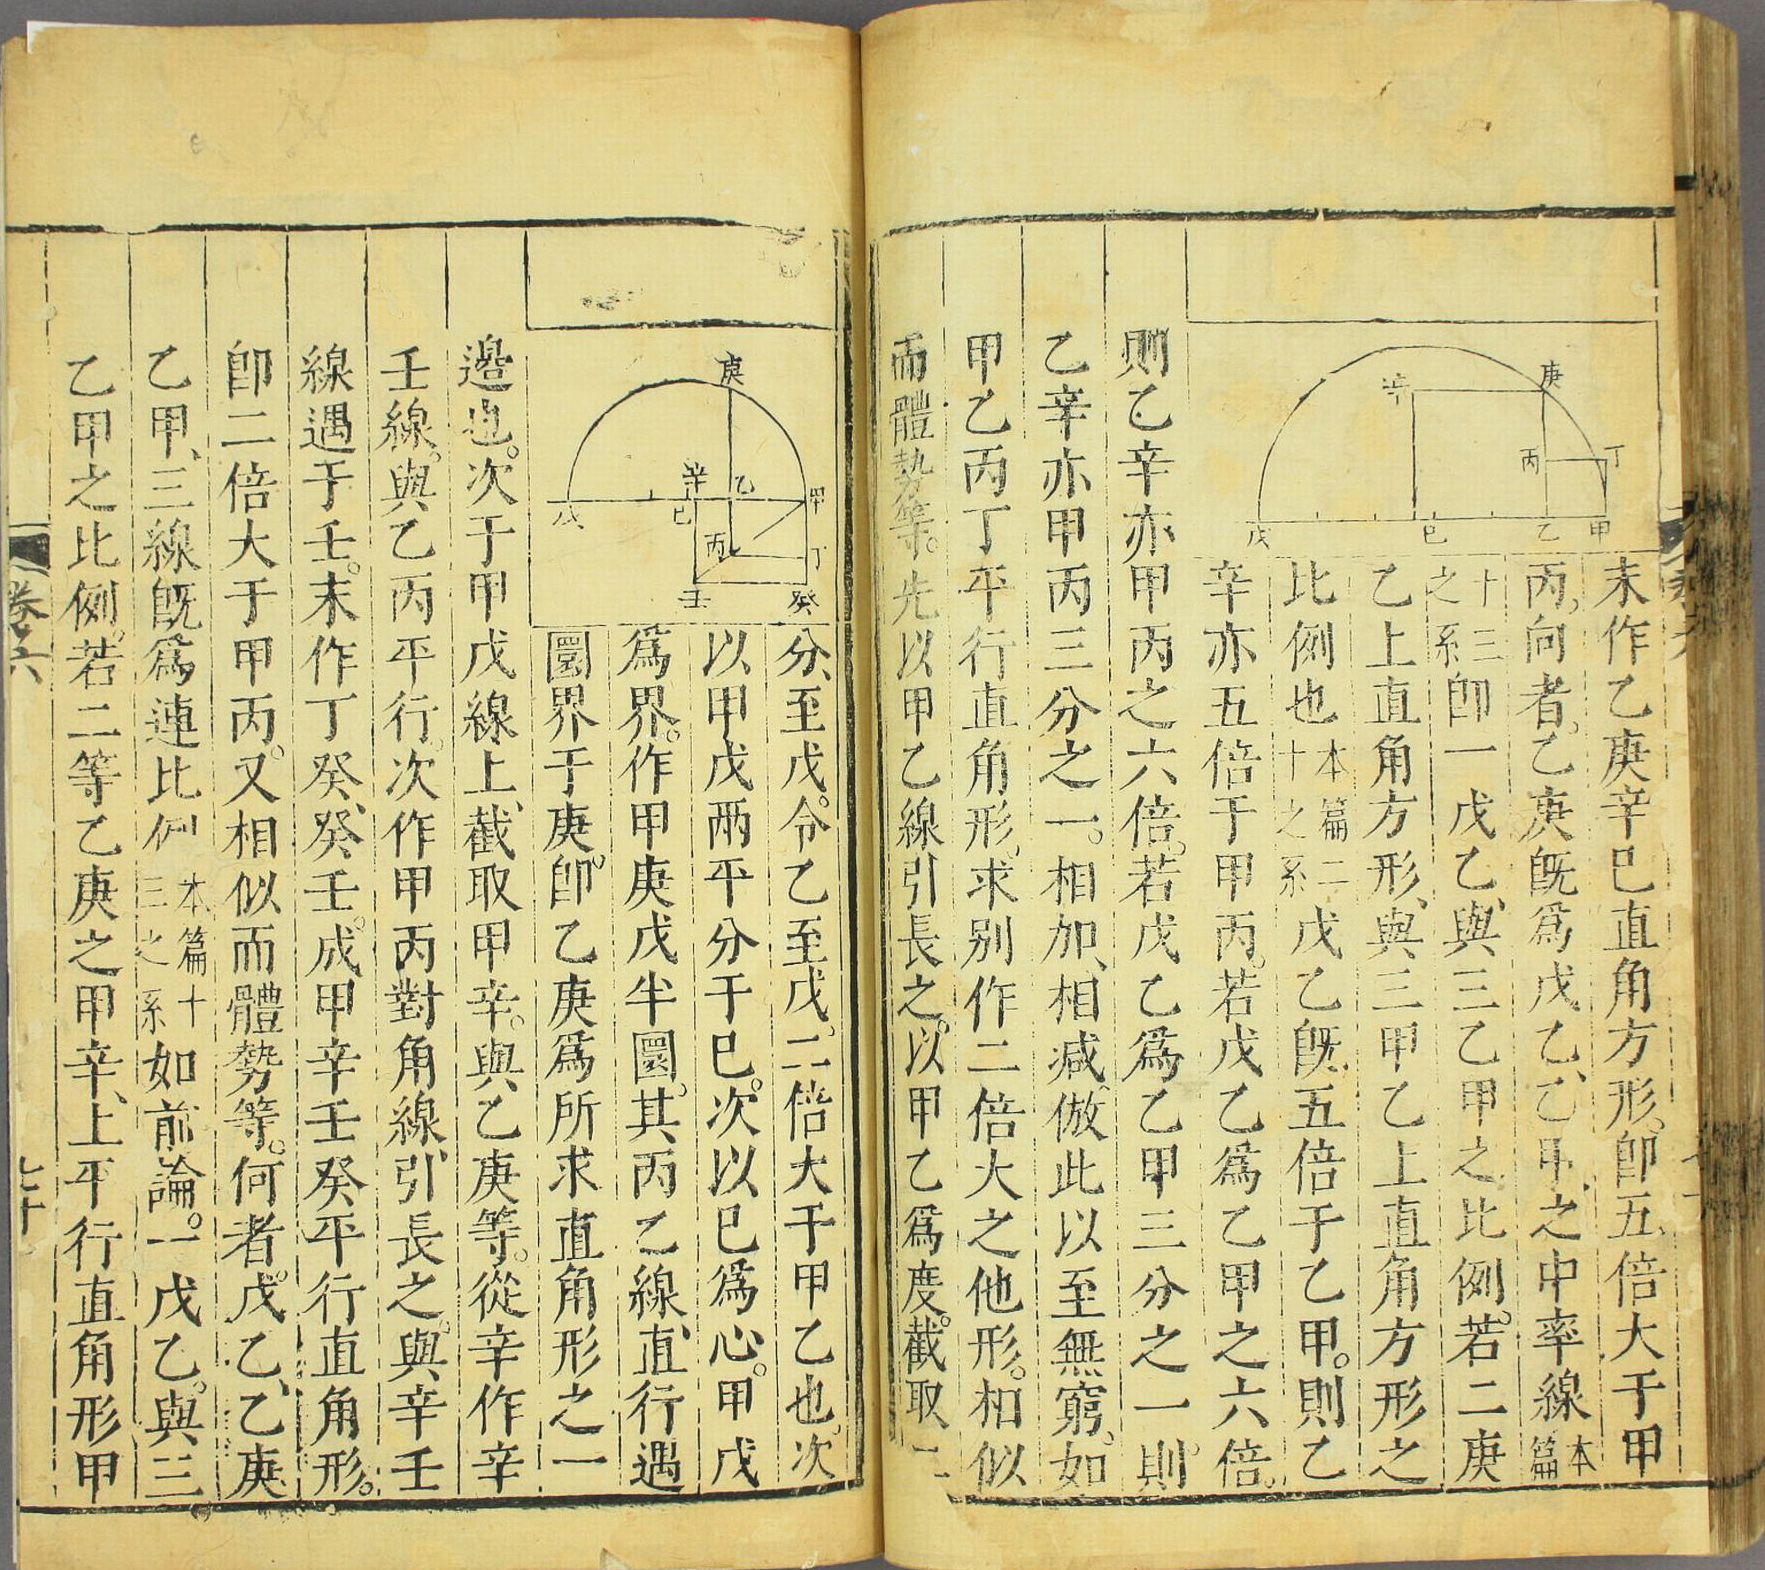 庚
辛
丁
丙
甲
乙
巳
戊
末作乙庚辛巳直角方形。即五倍大于甲
丙。向者。乙庚旣爲戊乙、乙甲、之中率線本篇
十三之系即一戊乙、與三乙甲之比例。若二庚
乙上直角方形、與三甲乙上直角方形之
比例也本篇二十之系戊乙旣五倍于乙甲。則乙
辛亦五倍于甲丙。若戊乙爲乙甲之六倍。
則乙辛亦甲丙之六倍。若戊乙爲乙甲三分之一。則
乙辛亦甲丙三分之一。相加、相減、倣此以至無窮。如
甲乙丙丁平行直角形、求别作二倍大之他形。相似
而體勢等。先以甲乙線引長之。以甲乙爲度。截取一
庚
辛
乙
甲
戊
巳
丙
丁
壬
癸
分、至戊。令乙至戊、二倍大于甲乙也。次
以甲戊兩平分于巳。次以巳爲心。甲戊
爲界。作甲庚戊半圜。其丙乙線、直行遇
圜界于庚。即乙庚爲所求直角形之一
邊也。次于甲戊線上、截取甲辛。與乙庚等。從辛作辛
壬線。與乙丙平行。次作甲丙對角線、引長之。與辛壬
線遇于壬。末作丁癸、癸壬。成甲辛壬癸平行直角形。
即二倍大于甲丙。又相似而體勢等。何者。戊乙、乙庚
乙甲、三線旣爲連比例本篇十三之系如前論。一戊乙。與三
乙甲之比例。若二等乙庚之甲辛、上平行直角形甲
卷六